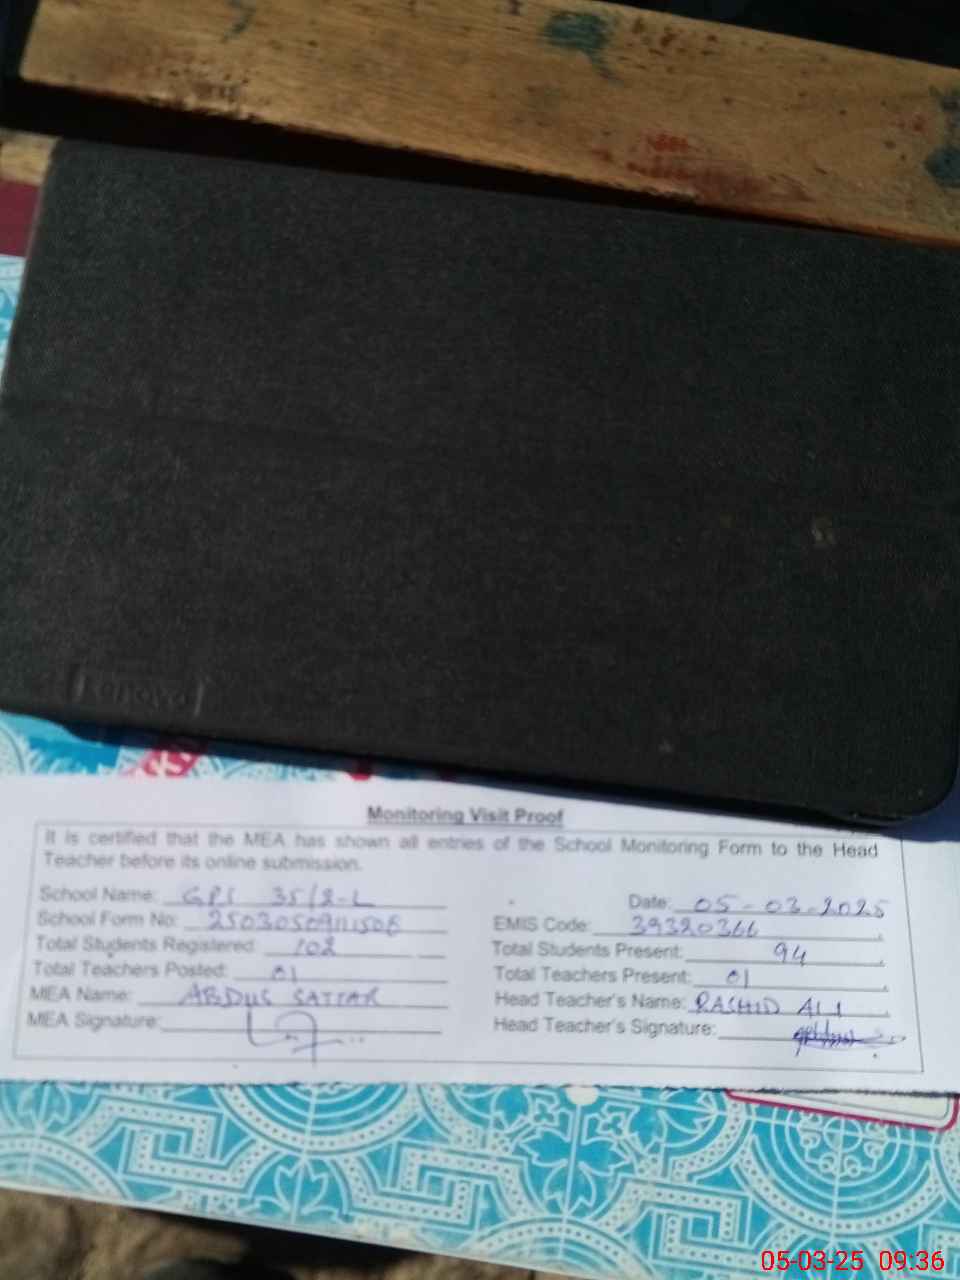 Lenovo
Monitoring Visit Proof
It is certified that the MEA has shown all entries of the School Monitoring Form to the Head
Teacher before its online submission.
School Name: GPS 35/2-L
Date: 05-03-2025
School Form No:
EMIS Code: 39320366
Total Students Registered: 102
Total Students Present: 94
Total Teachers Posted: 01
Total Teachers Present: 01
MEA Name: ABDUS SATTAR
Head Teacher's Name: RASHID ALI
MEA Signature:
Head Teacher's Signature:
05-03-25 09:36